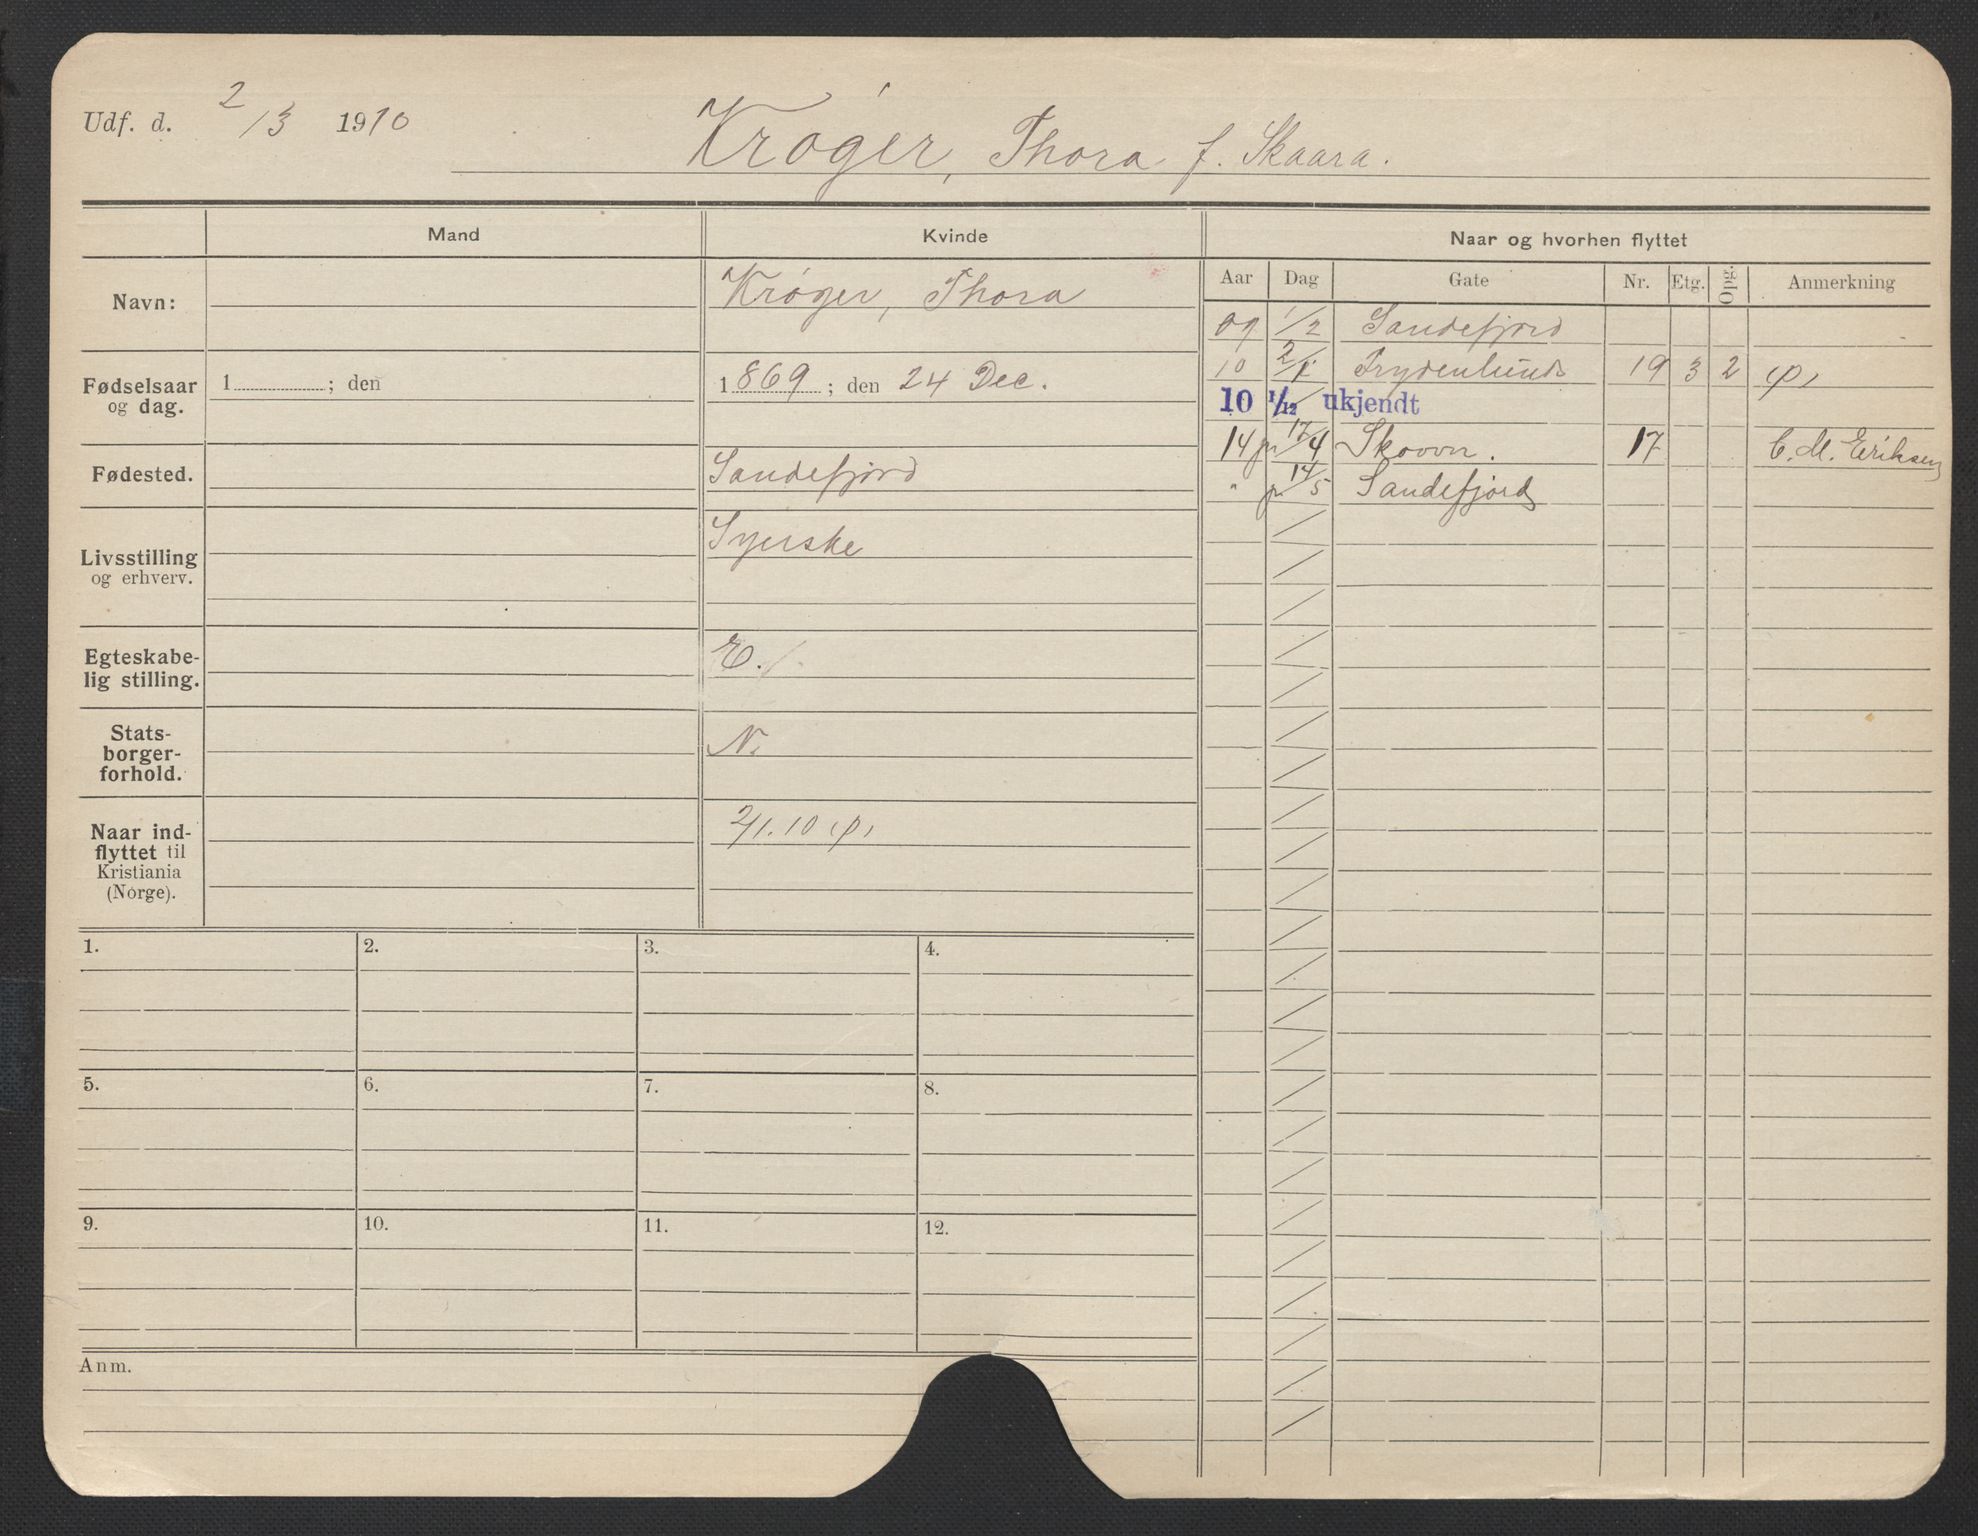 Udf. d. 2/3 1910
Krøger, Thora f. Skaara.
Mand
Kvinde
Naar og hvorhen flyttet
Navn:
Krøger, Thora
Aar Dag Gate Nr. Etg. Opg. Anmerkning
09 1/2 Sandefjord
10 2/1 Frydenlunds 19 3 2 (p)
10 1/12 ukjendt
14 pr 17/4 Skovvn. 17 C. M. Eriksen
" pr 14/5 Sandefjord
Fødselsaar
og dag.
1 ; den
1869 ; den 24 Dec.
Fødested.
Sandefjord
Livsstilling
og erhverv.
Syerske
Egteskabe-
lig stilling.
E.
Stats-
borger-
forhold.
N.
Naar ind-
flyttet til
Kristiania
(Norge).
2/1.10 (p)
1. 2. 3. 4.
5. 6. 7. 8.
9. 10. 11. 12.
Anm.